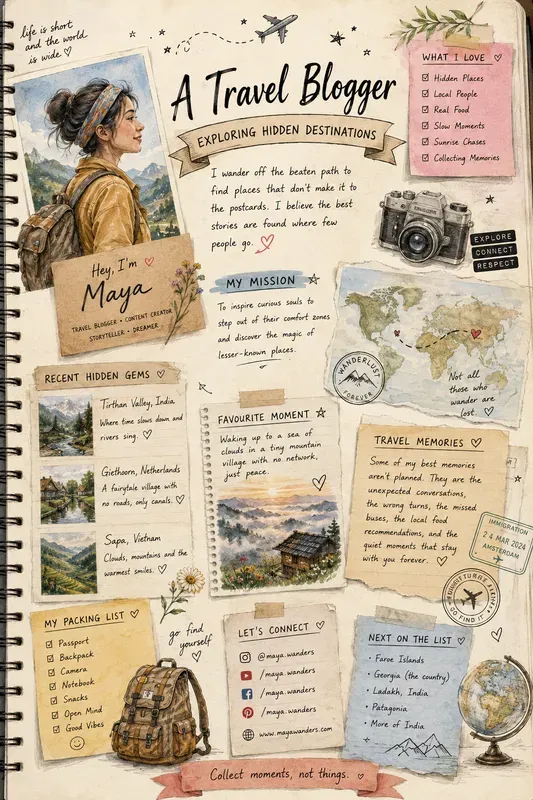 life is short
and the world
is wide ♡
A Travel Blogger
EXPLORING HIDDEN DESTINATIONS
I wander off the beaten path to
find places that don't make it to
the postcards. I believe the best
stories are found where few
people go. ♡
WHAT I LOVE ♡
☑ Hidden Places
☑ Local People
☑ Real Food
☑ Slow Moments
☑ Sunrise Chases
☑ Collecting Memories
EXPLORE
CONNECT
RESPECT
Hey, I'm ♡
Maya
TRAVEL BLOGGER • CONTENT CREATOR
STORYTELLER • DREAMER
MY MISSION
To inspire curious souls to
step out of their comfort zones
and discover the magic of
lesser-known places.
WANDERLUST
FOREVER
Not all
those who
wander are
lost. ♡
RECENT HIDDEN GEMS ♡
Tirthan Valley, India
Where time slows down and
rivers sing. ♡
Giethoorn, Netherlands
A fairytale village with
no roads, only canals. ♡
Sapa, Vietnam
Clouds, mountains and the
warmest smiles. ♡
FAVOURITE MOMENT
Waking up to a sea of
clouds in a tiny mountain
village with no network,
just peace.
TRAVEL MEMORIES ♡
Some of my best memories
aren't planned. They are the
unexpected conversations,
the wrong turns, the missed
buses, the local food
recommendations, and the
quiet moments that stay
with you forever. ♡
IMMIGRATION
24 MAR 2024
AMSTERDAM
GO FIND IT
MY PACKING LIST ♡
☑ Passport
☑ Backpack
☑ Camera
☑ Notebook
☑ Snacks
☑ Open Mind
☑ Good Vibes
go find
yourself
♡
LET'S CONNECT ♡
@maya.wanders
/maya.wanders
/maya.wanders
/maya.wanders
www.mayawanders.com
NEXT ON THE LIST ♡
• Faroe Islands
• Georgia (the country)
• Ladakh, India
• Patagonia
• More of India
Collect moments, not things. ♡